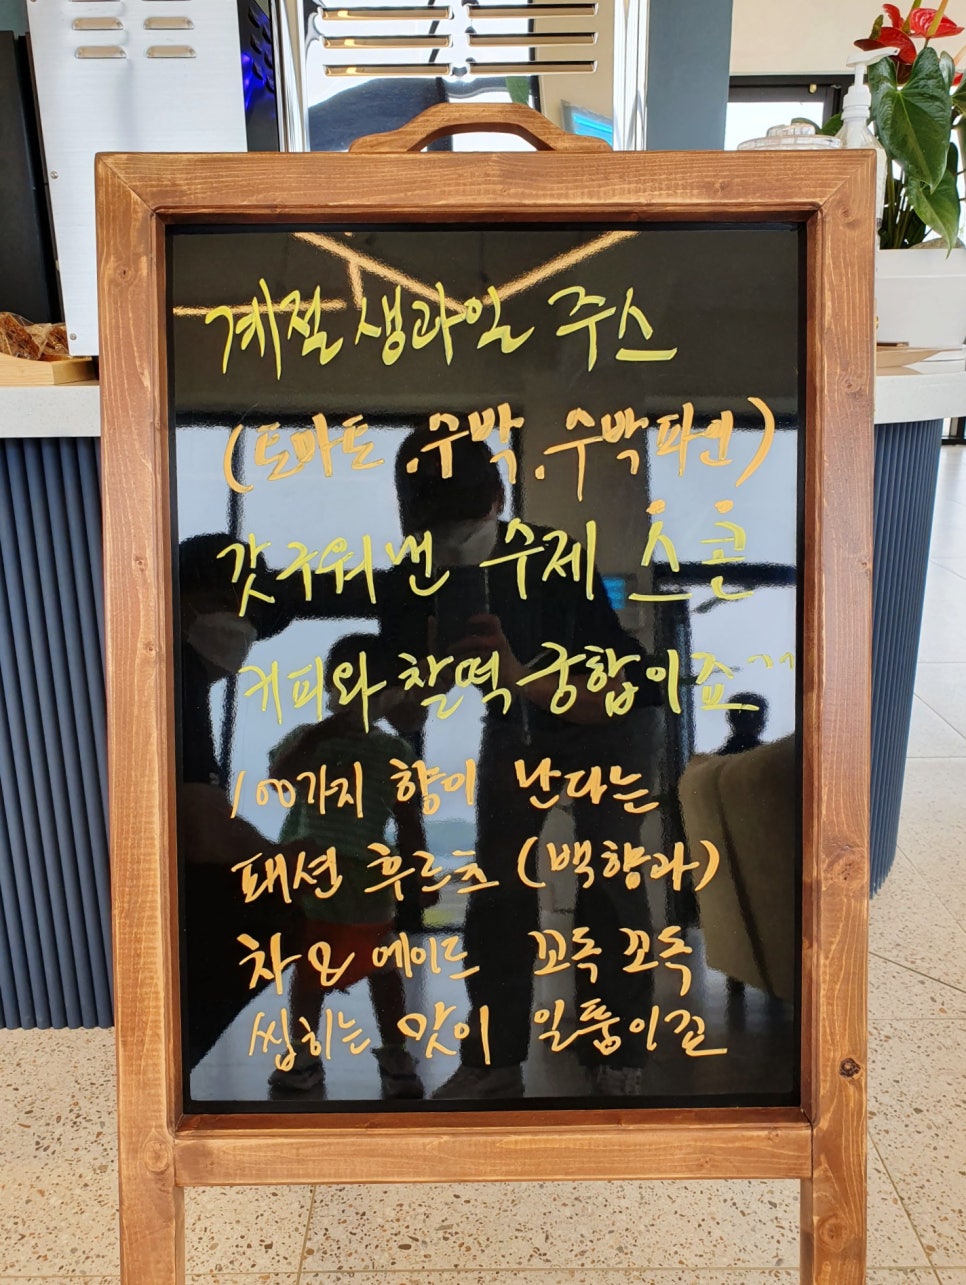 계절 생과일 주스
(토마토.수박.수박파인)
갓 구워낸 수제 스콘
커피와 찰떡 궁합이죠^^
100가지 향이 난다는
패션 후르츠 (백향과)
차 & 에이드 꼬독 꼬독
씹히는 맛이 일품이죠